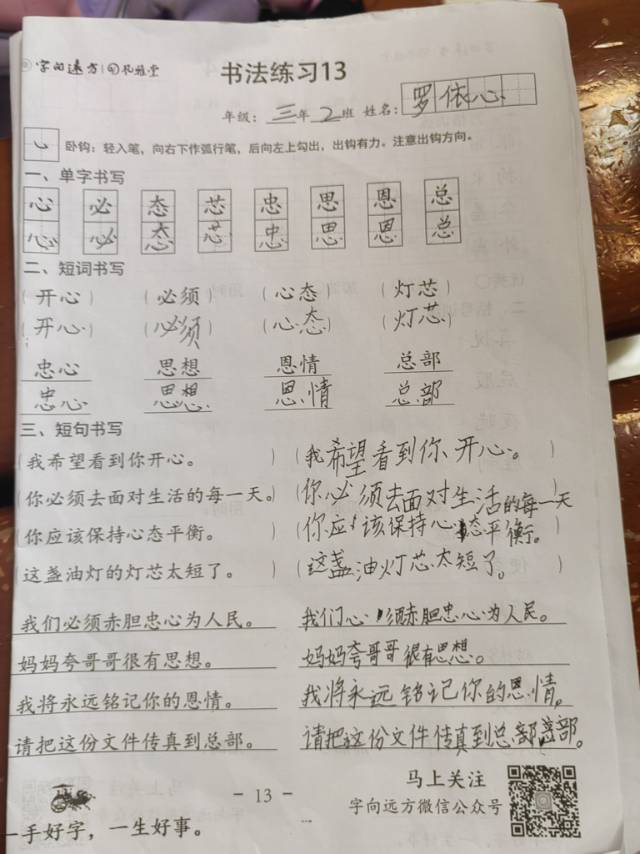 字向远方 向礼雅堂
书法练习13
年级：三年2班 姓名：罗依心
卧钩：轻入笔，向右下作弧行笔，后向左上勾出，出钩有力。注意出钩方向。
一、单字书写
心 必 态 芯 忠 思 恩 总
心 必 态 芯 忠 思 恩 总
二、短词书写
（开心） （必须） （心态） （灯芯）
（开心） （必须） （心态） （灯芯）
忠心 思想 恩情 总部
忠心 思想 恩情 总部
三、短句书写
（我希望看到你开心。） （我希望看到你开心。）
（你必须去面对生活的每一天。）（你必须去面对生活的每一天
（你应该保持心态平衡。） （你应该保持心态平衡。
（这盏油灯的灯芯太短了。） （这盏油灯芯太短了。）
我们必须赤胆忠心为人民。 我们心须赤胆忠心为人民。
妈妈夸哥哥很有思想。 妈妈夸哥哥很有思想。
我将永远铭记你的恩情。 我将永远铭记你的恩情。
请把这份文件传真到总部。 请把这份文件传真到总部总部。
马上关注
- 13 -
字向远方微信公众号
一手好字，一生好事。